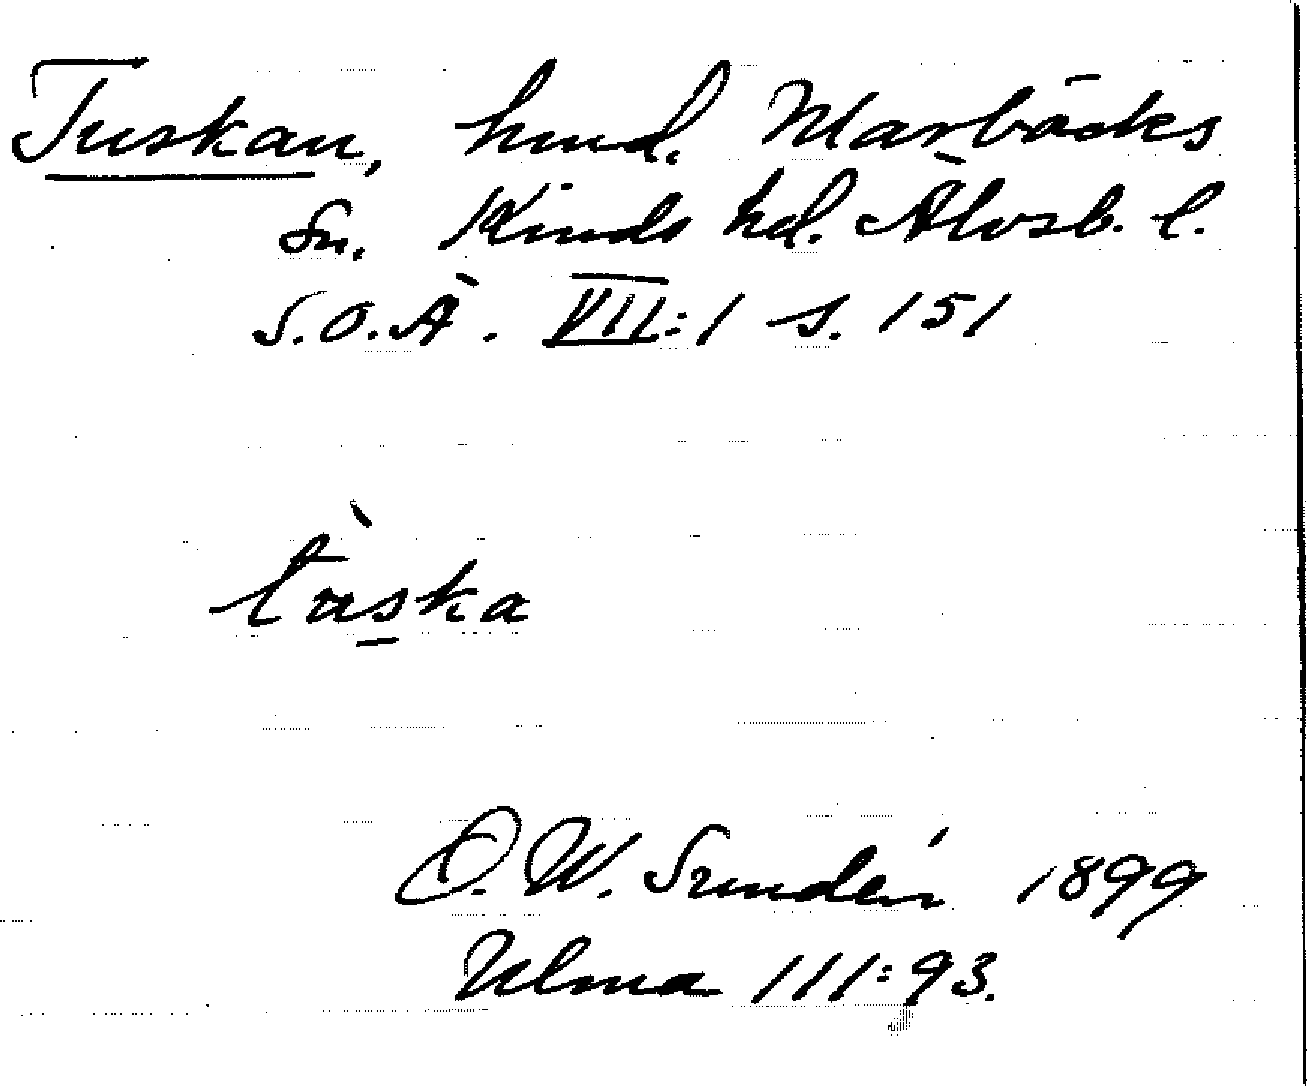 Tuskan, hmd. Marbäcks
sn. Kinds hd. Älvsb. l.
S.O.Ä. VII:1 s. 151
O.W. Sundén 1899
Ulma 111:93.